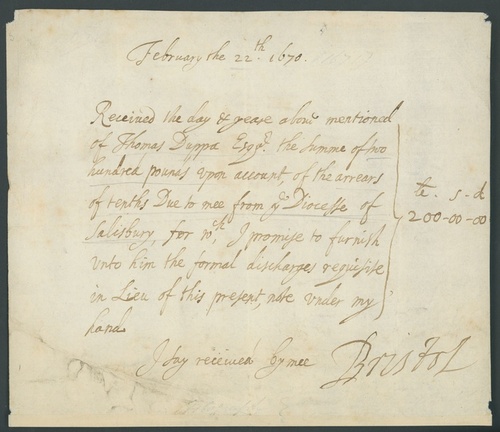 February the 22th. 1670.
Received the day & yeare above mentioned
of Thomas Duppa Esqr. the summe of two
hundred pounds upon account, of the arrears
of tenths Due to mee from ye Diocesse of
Salisbury, for wch. I promise to furnish
vnto him the formal discharges requisite
in Lieu of this present, note vnder my
hand
li. s. d
200-00-00
I say received by mee Bristol